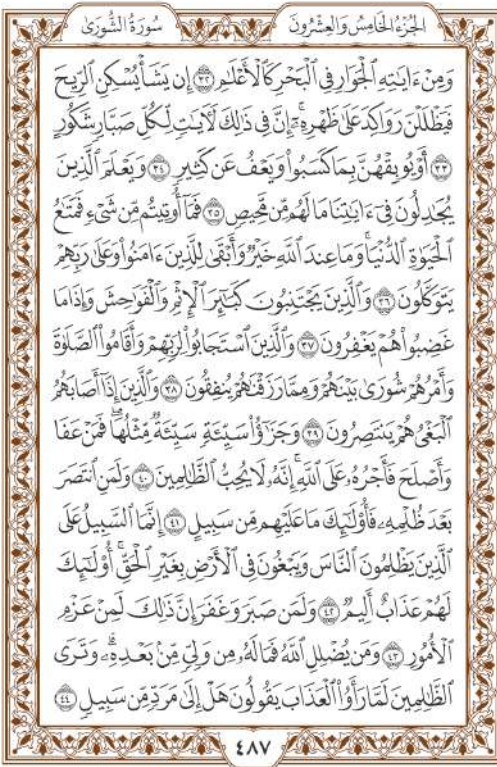 الجُزْءُ الخَامِسُ وَالعِشْرُونَ سُورَةُ الشُّورَىٰ
وَمِنْ ءَايَٰتِهِ ٱلْجَوَارِ فِى ٱلْبَحْرِ كَٱلْأَعْلَٰمِ ٣٢ إِن يَشَأْ يُسْكِنِ ٱلرِّيحَ
فَيَظْلَلْنَ رَوَاكِدَ عَلَىٰ ظَهْرِهِۦٓ ۚ إِنَّ فِى ذَٰلِكَ لَءَايَٰتٍ لِّكُلِّ صَبَّارٍ شَكُورٍ
٣٣ أَوْ يُوبِقْهُنَّ بِمَا كَسَبُوا۟ وَيَعْفُ عَن كَثِيرٍ ٣٤ وَيَعْلَمَ ٱلَّذِينَ
يُجَٰدِلُونَ فِىٓ ءَايَٰتِنَا مَا لَهُم مِّن مَّحِيصٍ ٣٥ فَمَآ أُوتِيتُم مِّن شَىْءٍ فَمَتَٰعُ
ٱلْحَيَوٰةِ ٱلدُّنْيَا ۖ وَمَا عِندَ ٱللَّهِ خَيْرٌ وَأَبْقَىٰ لِلَّذِينَ ءَامَنُوا۟ وَعَلَىٰ رَبِّهِمْ
يَتَوَكَّلُونَ ٣٦ وَٱلَّذِينَ يَجْتَنِبُونَ كَبَٰٓئِرَ ٱلْإِثْمِ وَٱلْفَوَٰحِشَ وَإِذَا مَا
غَضِبُوا۟ هُمْ يَغْفِرُونَ ٣٧ وَٱلَّذِينَ ٱسْتَجَابُوا۟ لِرَبِّهِمْ وَأَقَامُوا۟ ٱلصَّلَوٰةَ
وَأَمْرُهُمْ شُورَىٰ بَيْنَهُمْ وَمِمَّا رَزَقْنَٰهُمْ يُنفِقُونَ ٣٨ وَٱلَّذِينَ إِذَآ أَصَابَهُمُ
ٱلْبَغْىُ هُمْ يَنتَصِرُونَ ٣٩ وَجَزَٰٓؤُا۟ سَيِّئَةٍ سَيِّئَةٌ مِّثْلُهَا ۖ فَمَنْ عَفَا
وَأَصْلَحَ فَأَجْرُهُۥ عَلَى ٱللَّهِ ۚ إِنَّهُۥ لَا يُحِبُّ ٱلظَّٰلِمِينَ ٤٠ وَلَمَنِ ٱنتَصَرَ
بَعْدَ ظُلْمِهِۦ فَأُو۟لَٰٓئِكَ مَا عَلَيْهِم مِّن سَبِيلٍ ٤١ إِنَّمَا ٱلسَّبِيلُ عَلَى
ٱلَّذِينَ يَظْلِمُونَ ٱلنَّاسَ وَيَبْغُونَ فِى ٱلْأَرْضِ بِغَيْرِ ٱلْحَقِّ ۚ أُو۟لَٰٓئِكَ
لَهُمْ عَذَابٌ أَلِيمٌ ٤٢ وَلَمَن صَبَرَ وَغَفَرَ إِنَّ ذَٰلِكَ لَمِنْ عَزْمِ
ٱلْأُمُورِ ٤٣ وَمَن يُضْلِلِ ٱللَّهُ فَمَا لَهُۥ مِن وَلِىٍّ مِّنۢ بَعْدِهِۦ ۗ وَتَرَى
ٱلظَّٰلِمِينَ لَمَّا رَأَوُا۟ ٱلْعَذَابَ يَقُولُونَ هَلْ إِلَىٰ مَرَدٍّ مِّن سَبِيلٍ ٤٤
٤٨٧